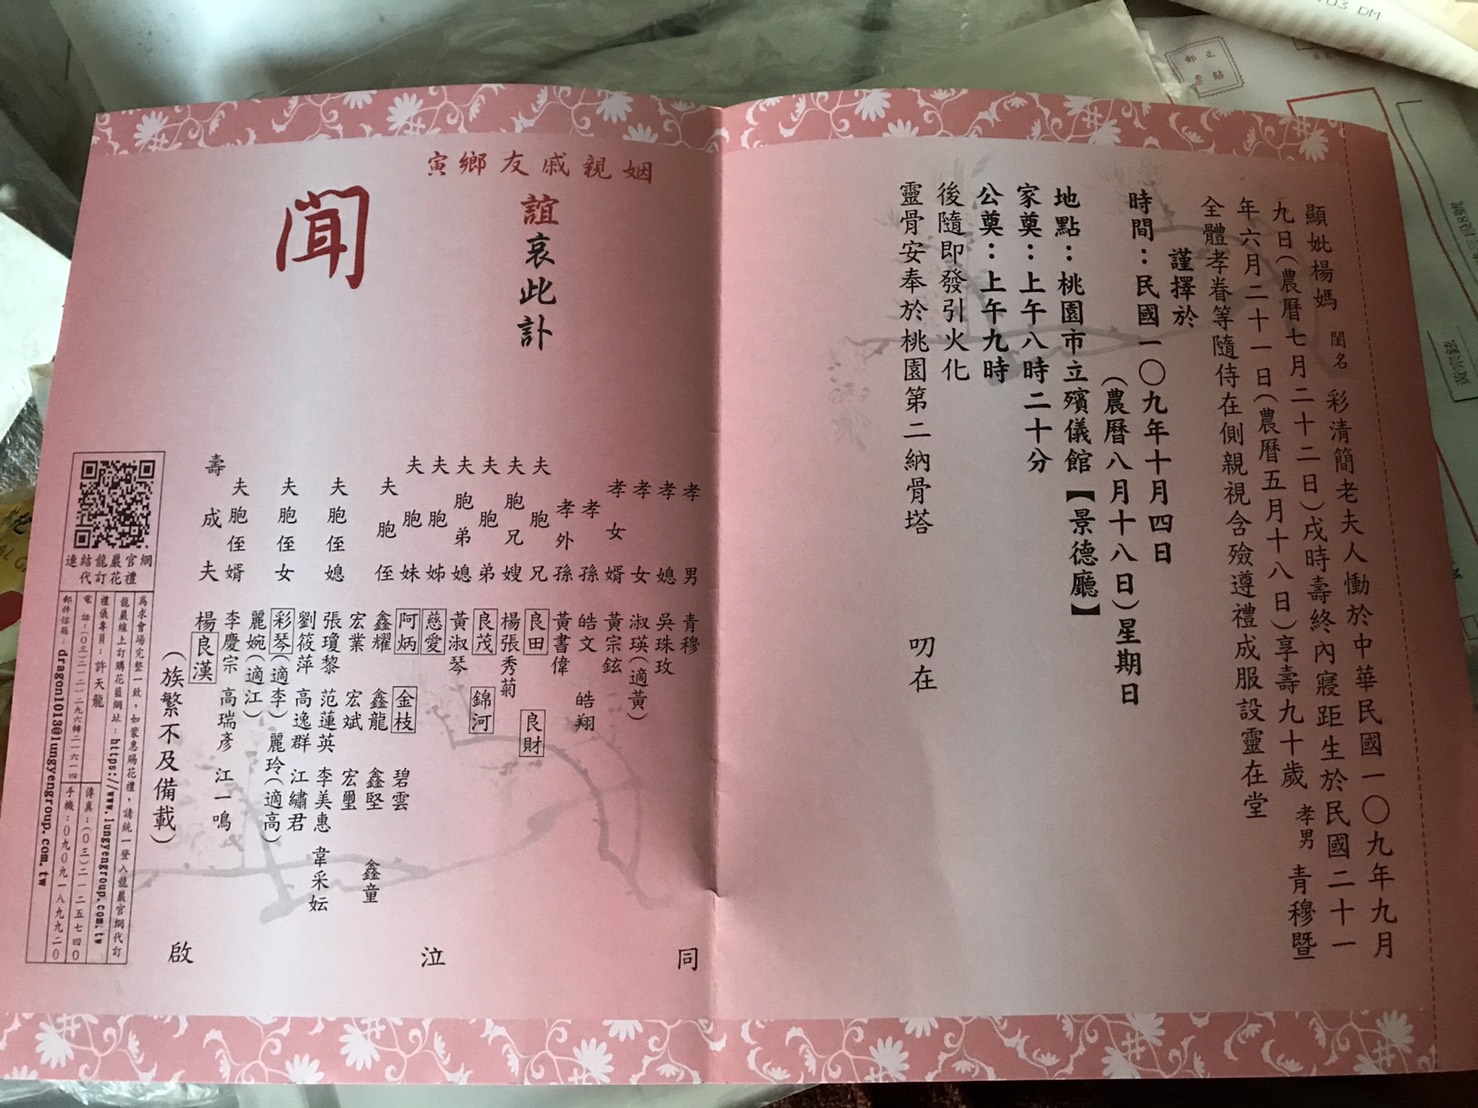 顯妣楊媽 閨名 彩清簡老夫人慟於中華民國一〇九年九月
九日(農曆七月二十二日)戌時壽終內寢距生於民國二十一
年六月二十一日(農曆五月十八日)享壽九十歲 孝男 青穆暨
全體孝眷等隨侍在側親視含殮遵禮成服設靈在堂
謹擇於
時間：民國一〇九年十月四日
(農曆八月十八日)星期日
地點：桃園市立殯儀館【景德廳】
家奠：上午八時二十分
公奠：上午九時
後隨即發引火化
靈骨安奉於桃園第二納骨塔
叨在
姻親戚友鄉寅
誼哀此訃
聞
孝男 青穆
孝媳 吳珠玫
孝女 淑瑛(適黃)
孝女婿 黃宗鉉
孝孫 皓文 皓翔
孝外孫 黃書偉
夫胞兄 良田 良財
夫胞兄嫂 楊張秀菊
夫胞弟 良茂 錦河
夫胞弟媳 黃淑琴
夫胞姊 慈愛
夫胞妹 阿炳 金枝 碧雲
夫胞侄 鑫耀 鑫龍 鑫堅 鑫童
宏業 宏斌 宏璽
夫胞侄媳 張瓊黎 范蓮英 李美惠 韋采妘
劉筱萍 高逸群 江繡君
夫胞侄女 彩琴(適李) 麗玲(適高)
麗婉(適江)
夫胞侄婿 李慶宗 高瑞彥 江一鳴
壽成夫 楊良漢
(族繁不及備載)
同泣啟
連結龍巖官網
代訂花禮
為求會場完整一致，如蒙惠賜花禮，請統一登入龍巖官網代訂
龍巖線上訂購花籃網址：https://www.lungyengroup.com.tw
禮儀專員：許天龍
傳真：(〇三)二一二五七四〇
電話：(〇三)二一二二九六轉二一六一四
手機：〇九〇九一八九九二〇
郵件信箱：dragon1013@lungyengroup.com.tw
正貼
郵票